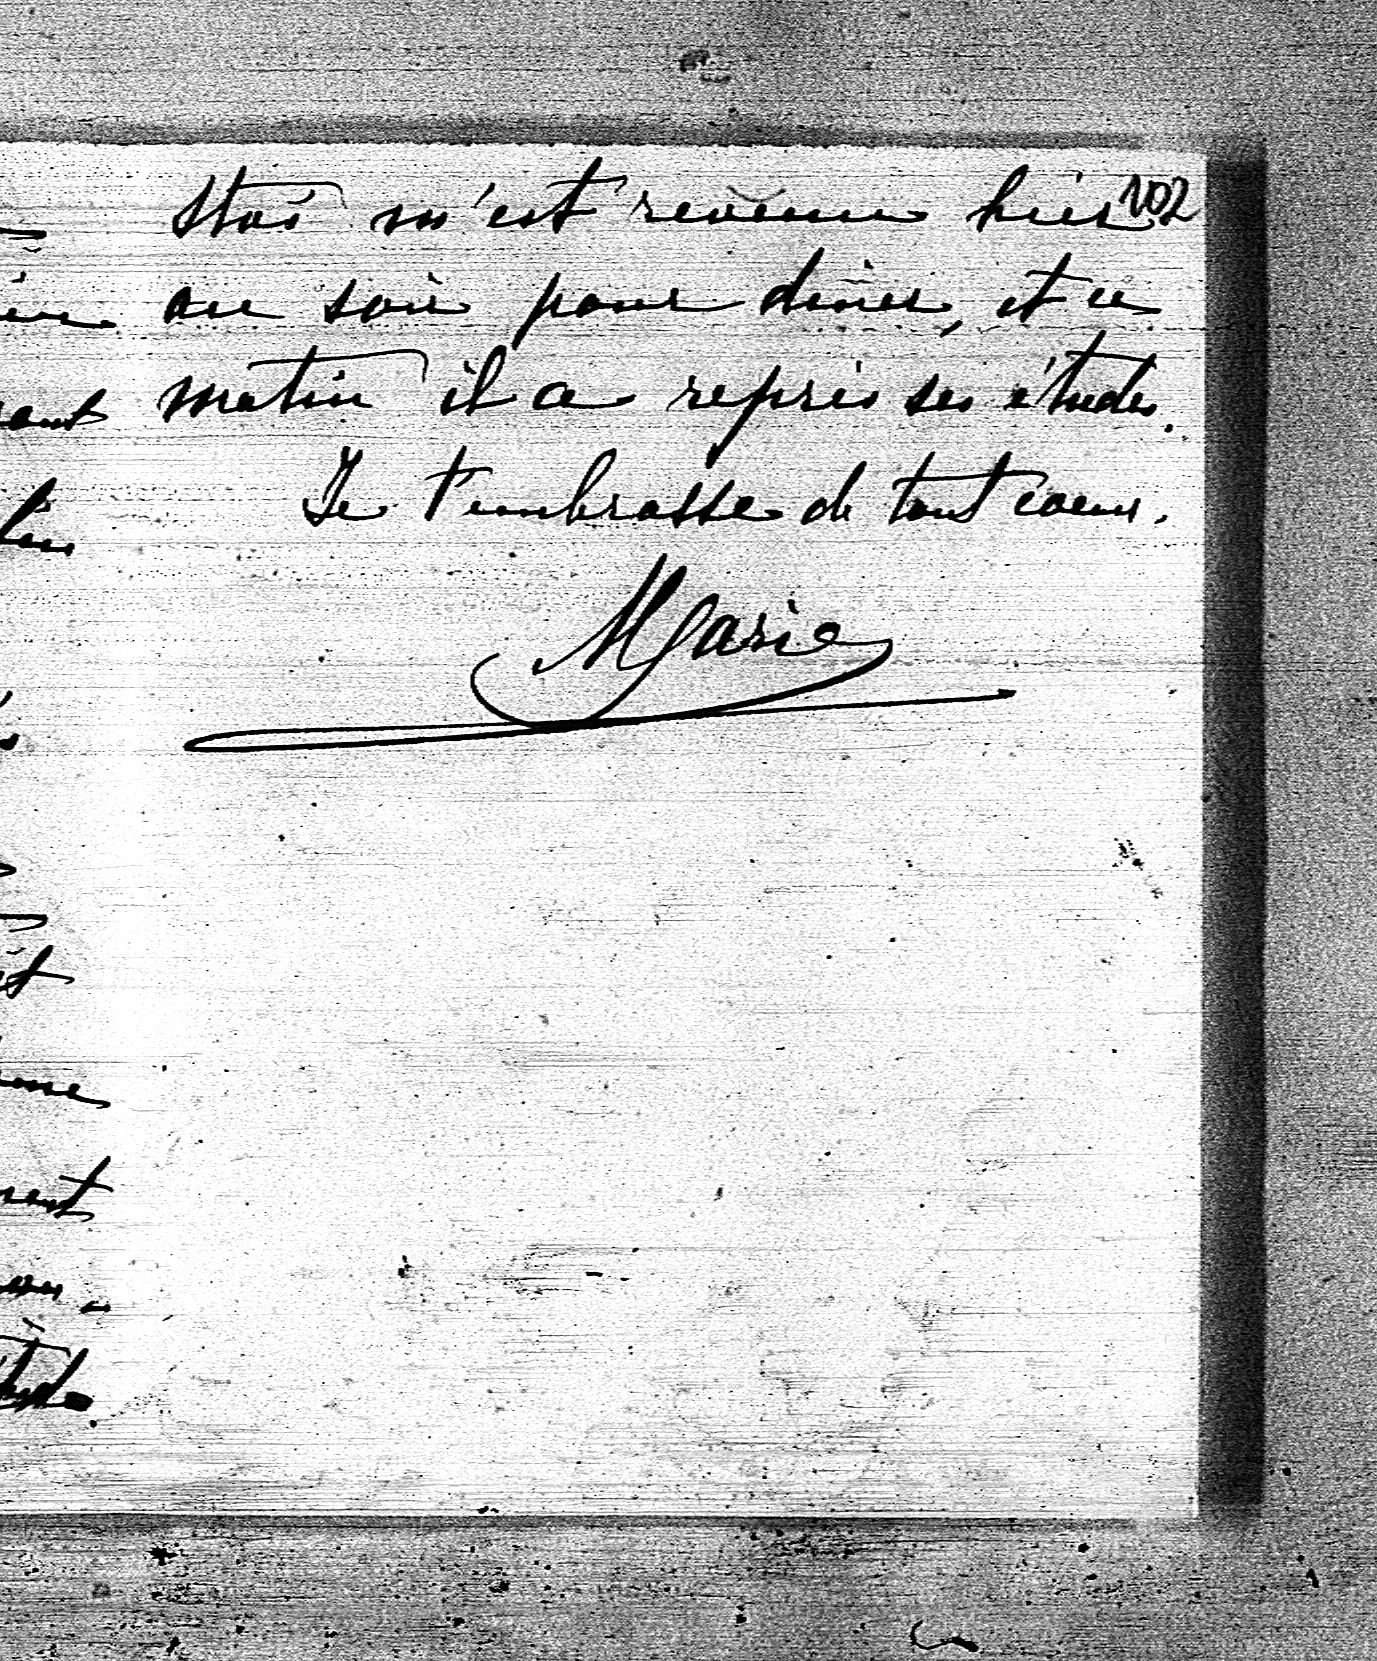 102
Stas m'est revenu hier
au soir pour diner, et ce
matin il a repris ses études.
Je t'embrasse de tout coeur.
Marie
ant
lui
it
ment